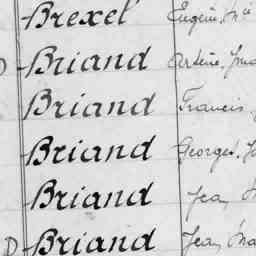 Brexel Eugène, M
D Briand Arsène, Jma
Briand Francis
Briand Georges, J
Briand Jean M
D Briand Jean Ma